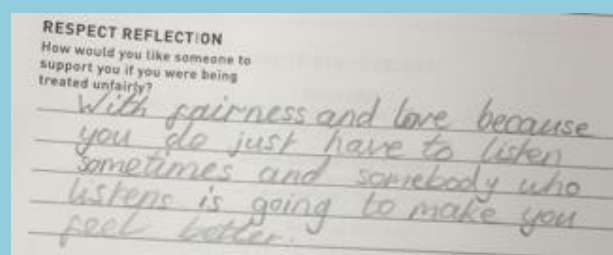 RESPECT REFLECTION
How would you like someone to
support you if you were being
treated unfairly?
With fairness and love because
you do just have to listen
sometimes and somebody who
listens is going to make you
feel better.